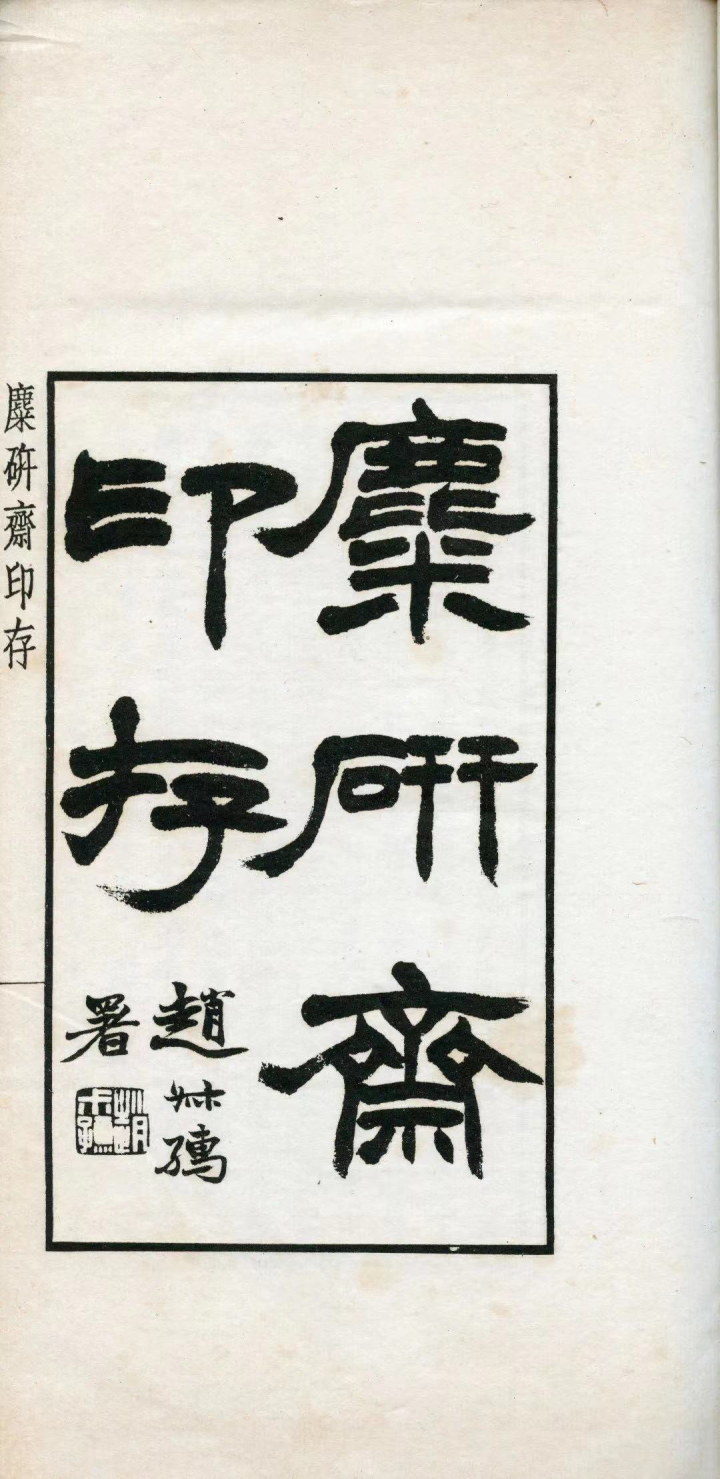 麋研齋
印存
趙叔孺
署
麋研齋印存